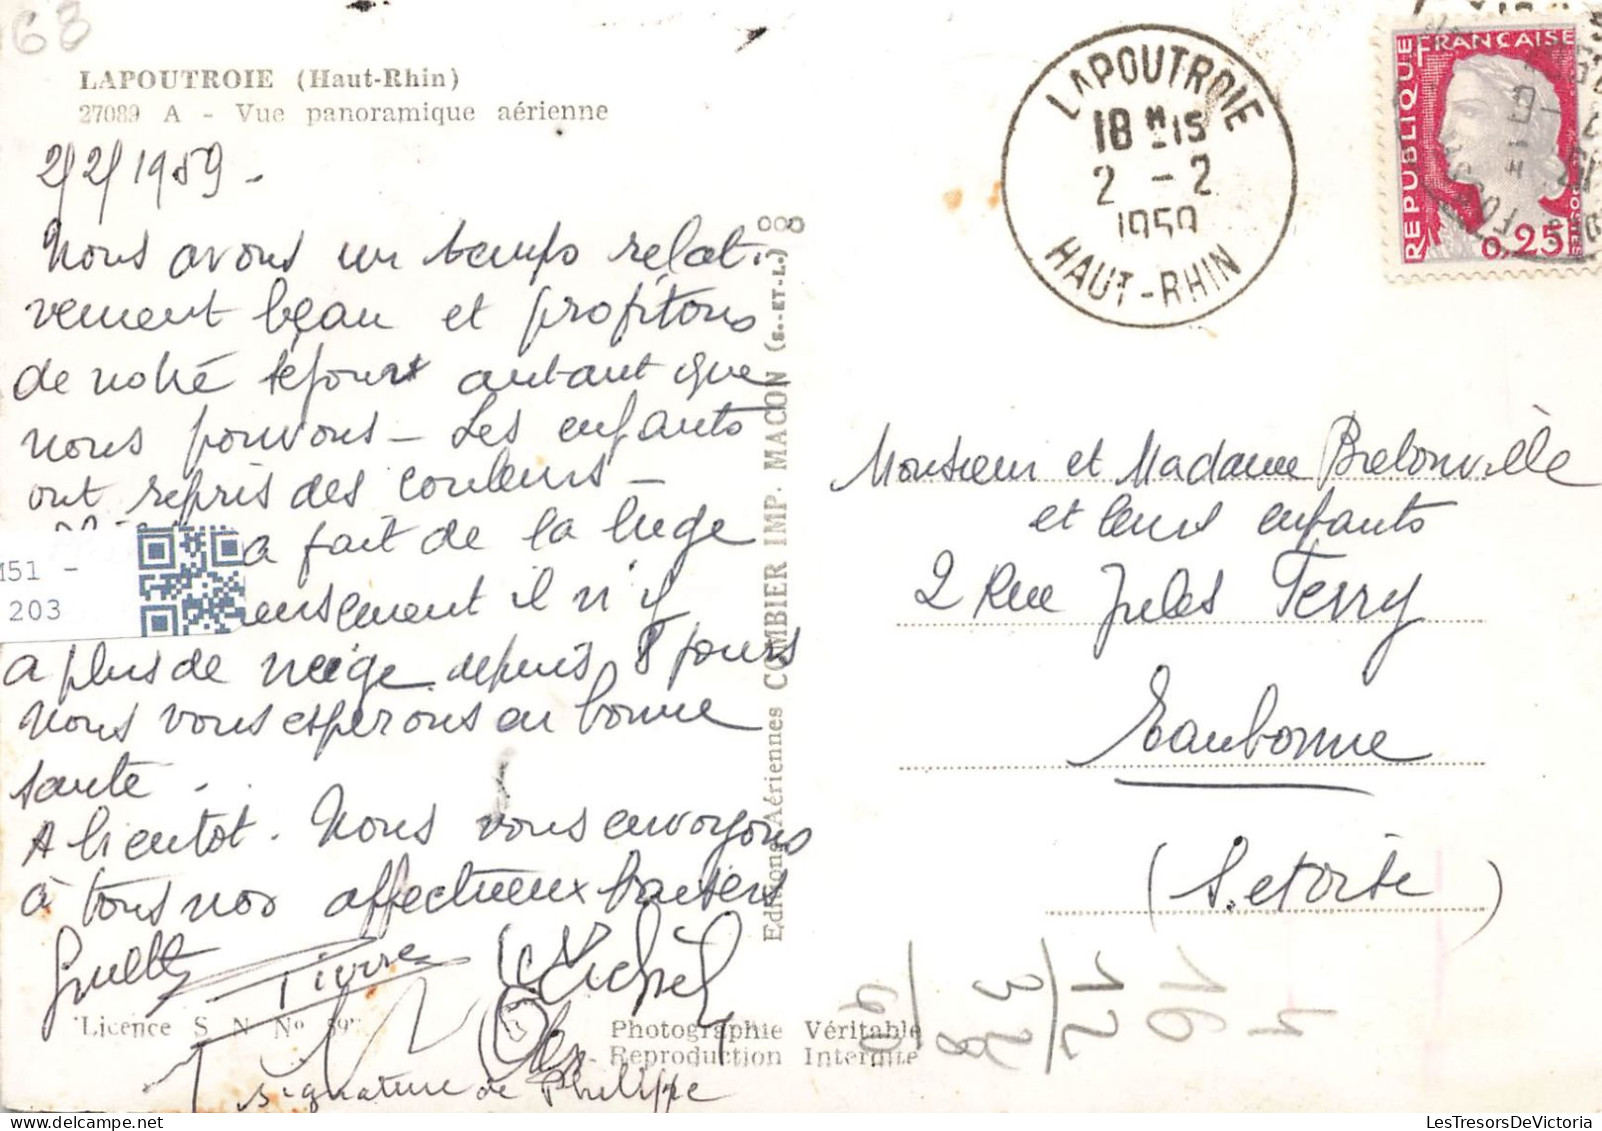 68
LAPOUTROIE (Haut-Rhin)
27089 A - Vue panoramique aérienne
2/2/1959 -
Nous avons un temps relati
vement beau et profitons
de notre séjour autant que
nous pouvons - Les enfants
ont repris des couleurs -
a fait de la luge
eusement il n'y
a plus de neige depuis 8 jours
Nous vous esperons en bonne
santé -
A bientot. Nous vous envoyons
à tous nos affectueux baisers
Pierre Michel
signature de Philippe
Licence S N N°
Photographie Véritable
Reproduction Interdite
Editions Aériennes COMBIER IMP. MACON (S.-ET-L.)
M51 -
203
LAPOUTROIE
18 H 15
2 - 2
1959
HAUT-RHIN
REPUBLIQUE FRANÇAISE
0,25
Monsieur et Madame Bretonville
et leurs enfants
2 Rue Jules Ferry
Eaubonne
(S. et Oise)
4
16
12
LesTresorsDeVictoria